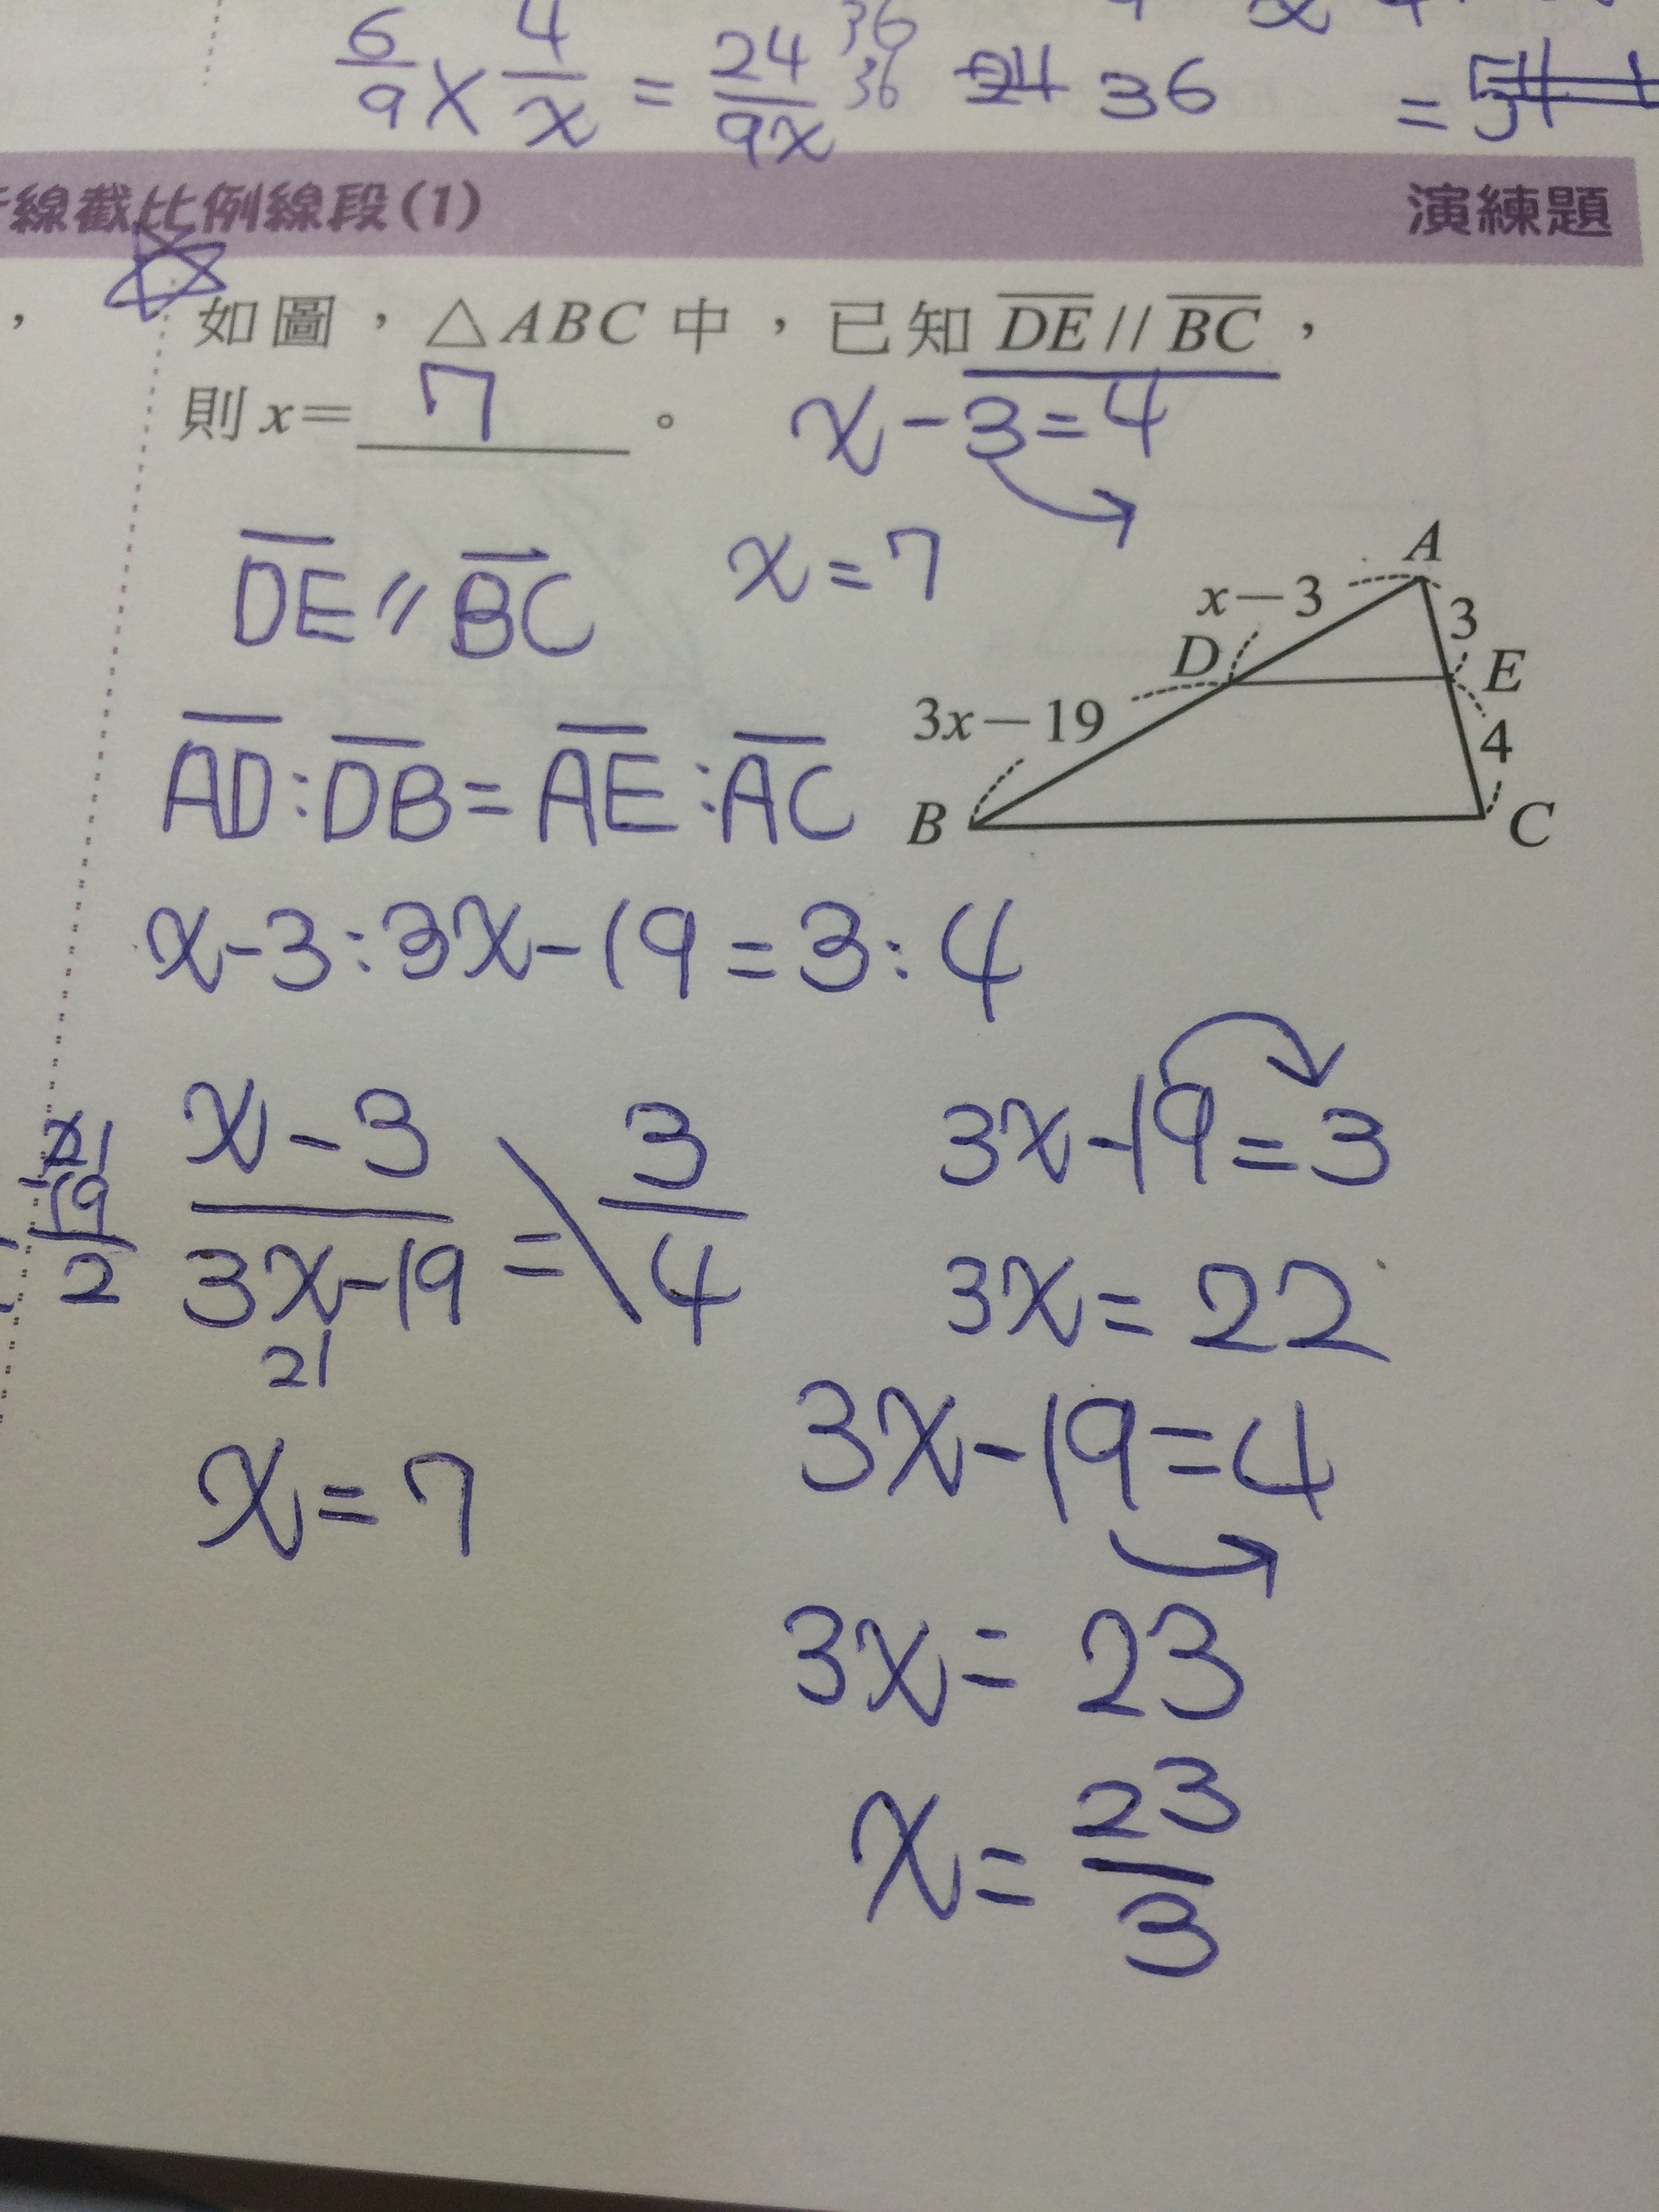 6/9 × 4/x = 24/9x 36 36 24 36 = 54
線截比例線段(1) 演練題
, 如圖，△ABC中，已知 DE // BC，
則 x= 7 。 x-3=4
x=7
DE // BC
A
x-3
3
D
E
3x-19
4
B
C
AD:DB=AE:AC
x-3:3x-19=3:4
x-3/3x-19=3/4
21
19
2
21
x=7
3x-19=3
3x=22
3x-19=4
3x=23
x=23/3